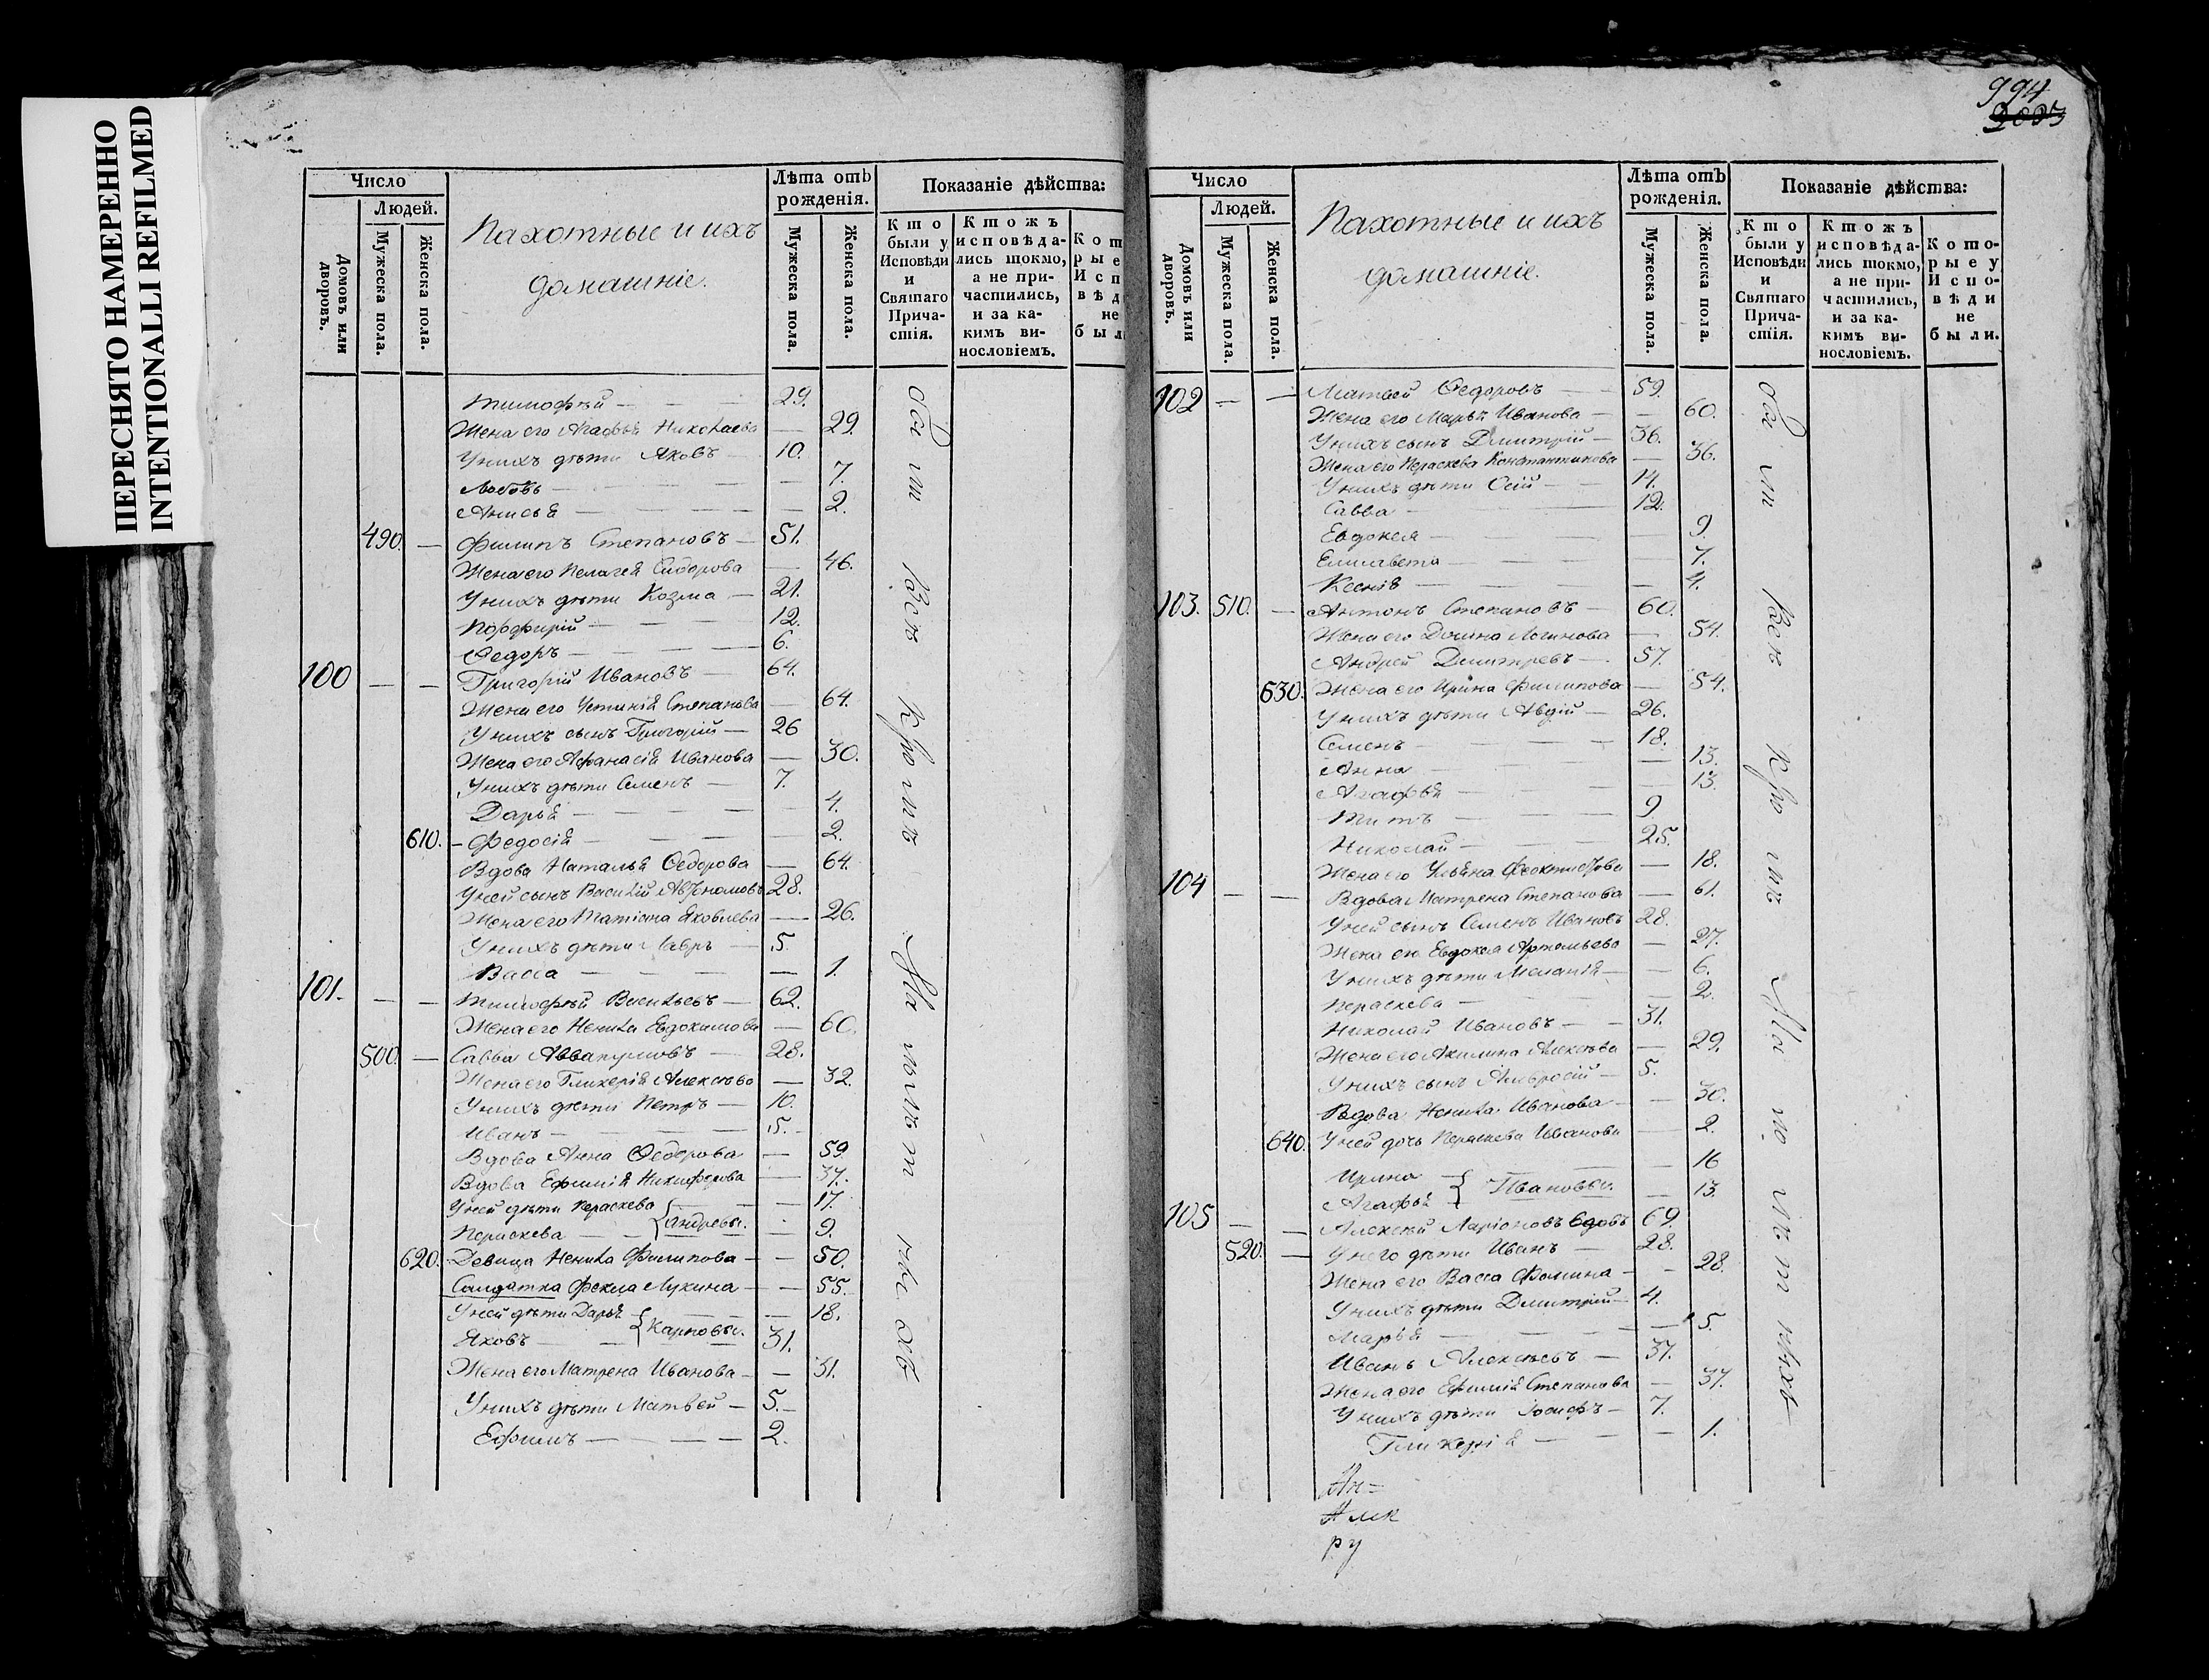 ПЕРЕСНЯТО НАМЕРЕННО
INTENTIONALLI REFILMED
994
Число
Людей.
Домовъ или дворовъ.
Мужеска пола.
Женска пола.
Пахотные и ихъ
домашніе.
Лѣта отъ рожденія.
Мужеска пола.
Женска пола.
Показаніе дѣйства:
Кто были у Исповѣди и Святаго Причастія.
Ктожъ исповѣдались токмо, а не причастились, и за какимъ винословіемъ.
Тимофей — 29.
Жена его Агафья Николаева — 29.
У нихъ дѣти Яковъ — 10.
Любовь — 7.
Анисья — 2.
490. — Филипъ Степановъ — 51.
Жена его Пелагея Сидорова — 46.
У нихъ дѣти Козма — 21.
Порфирій — 12.
Ѳедоръ — 6.
100 — — Григорій Ивановъ — 64.
Жена его Устинія Степанова — 64.
У нихъ сынъ Григорій — 26
Жена его Афанасія Иванова — 30.
У нихъ дѣти Семенъ — 7.
Дарья — 4.
610. — Федосія — 2.
Вдова Наталья Ѳедорова — 64.
У ней сынъ Василій Автономовъ 28.
Жена его Татіана Яковлева — 26.
У нихъ дѣти Лавръ — 5.
Васса — 1.
101. — — Тимофей Васильевъ — 62.
Жена его Ненила Евдокимова — 60.
500. — Савва Аввакумовъ — 28.
Жена его Гликерія Алексѣева — 32.
У нихъ дѣти Петръ — 10.
Иванъ — 5.
Вдова Анна Ѳедорова — 59.
Вдова Ефимія Никифорова — 37.
У ней дѣти Пераскева — 17.
Андревы.
Пераскева — 9.
620. Девица Ненила Филипова — 50.
Солдатка Фекла Лукина — 55.
У ней дѣти Дарья — 18.
Карповы.
Яковъ — 31.
Жена его Матрена Иванова — 31.
У нихъ дѣти Матвей — 5.
Ефимъ — 2.
Число
Людей.
Домовъ или дворовъ.
Мужеска пола.
Женска пола.
Пахотные и ихъ
домашніе.
Лѣта отъ рожденія.
Мужеска пола.
Женска пола.
Показаніе дѣйства:
Кто были у Исповѣди и Святаго Причастія.
Ктожъ исповѣдались токмо, а не причастились, и за какимъ винословіемъ.
Которые у Исповѣди не были.
102 — — Матвей Ѳедоровъ — 59.
Жена его Марья Иванова — 60.
У нихъ сынъ Дмитрій — 36.
Жена его Пераскева Константинова — 36.
У нихъ дѣти Осій — 14.
Савва — 12.
Евдокея — 9.
Елисавета — 7.
Ксенія — 4.
103. 510. — Антонъ Степановъ — 60.
Жена его Домна Логинова — 54.
Андрей Дмитревъ — 57.
630. Жена его Ирина Филипова — 54.
У нихъ дѣти Авдій — 26.
Семенъ — 18.
Анна — 13.
Агафья — 13.
Титъ — 9.
Николай — 25.
Жена его Ульяна Феоктистова — 18.
104 — — Вдова Матрена Степанова — 61.
У ней сынъ Семенъ Ивановъ 28.
Жена его Евдокея Артемьева — 27.
У нихъ дѣти Меланія — 6.
Пераскева — 2.
Николай Ивановъ — 31.
Жена его Акилина Алексѣева — 29.
У нихъ сынъ Амвросій — 5.
Вдова Ненила Иванова — 30.
640. У ней дочь Пераскева Иванова — 2.
Ирина — 16
Ивановы.
Агафья — 13.
105 — — Алексѣй Ларіоновъ вдовъ 69.
520. — У него дѣти Иванъ — 28.
Жена его Васса Фомина — 28.
У нихъ дѣти Дмитрій — 4.
Марья — 5.
Иванъ Алексѣевъ — 37.
Жена его Ефимія Степанова — 37.
У нихъ дѣти Іосифъ — 7.
Гликерія — 1.